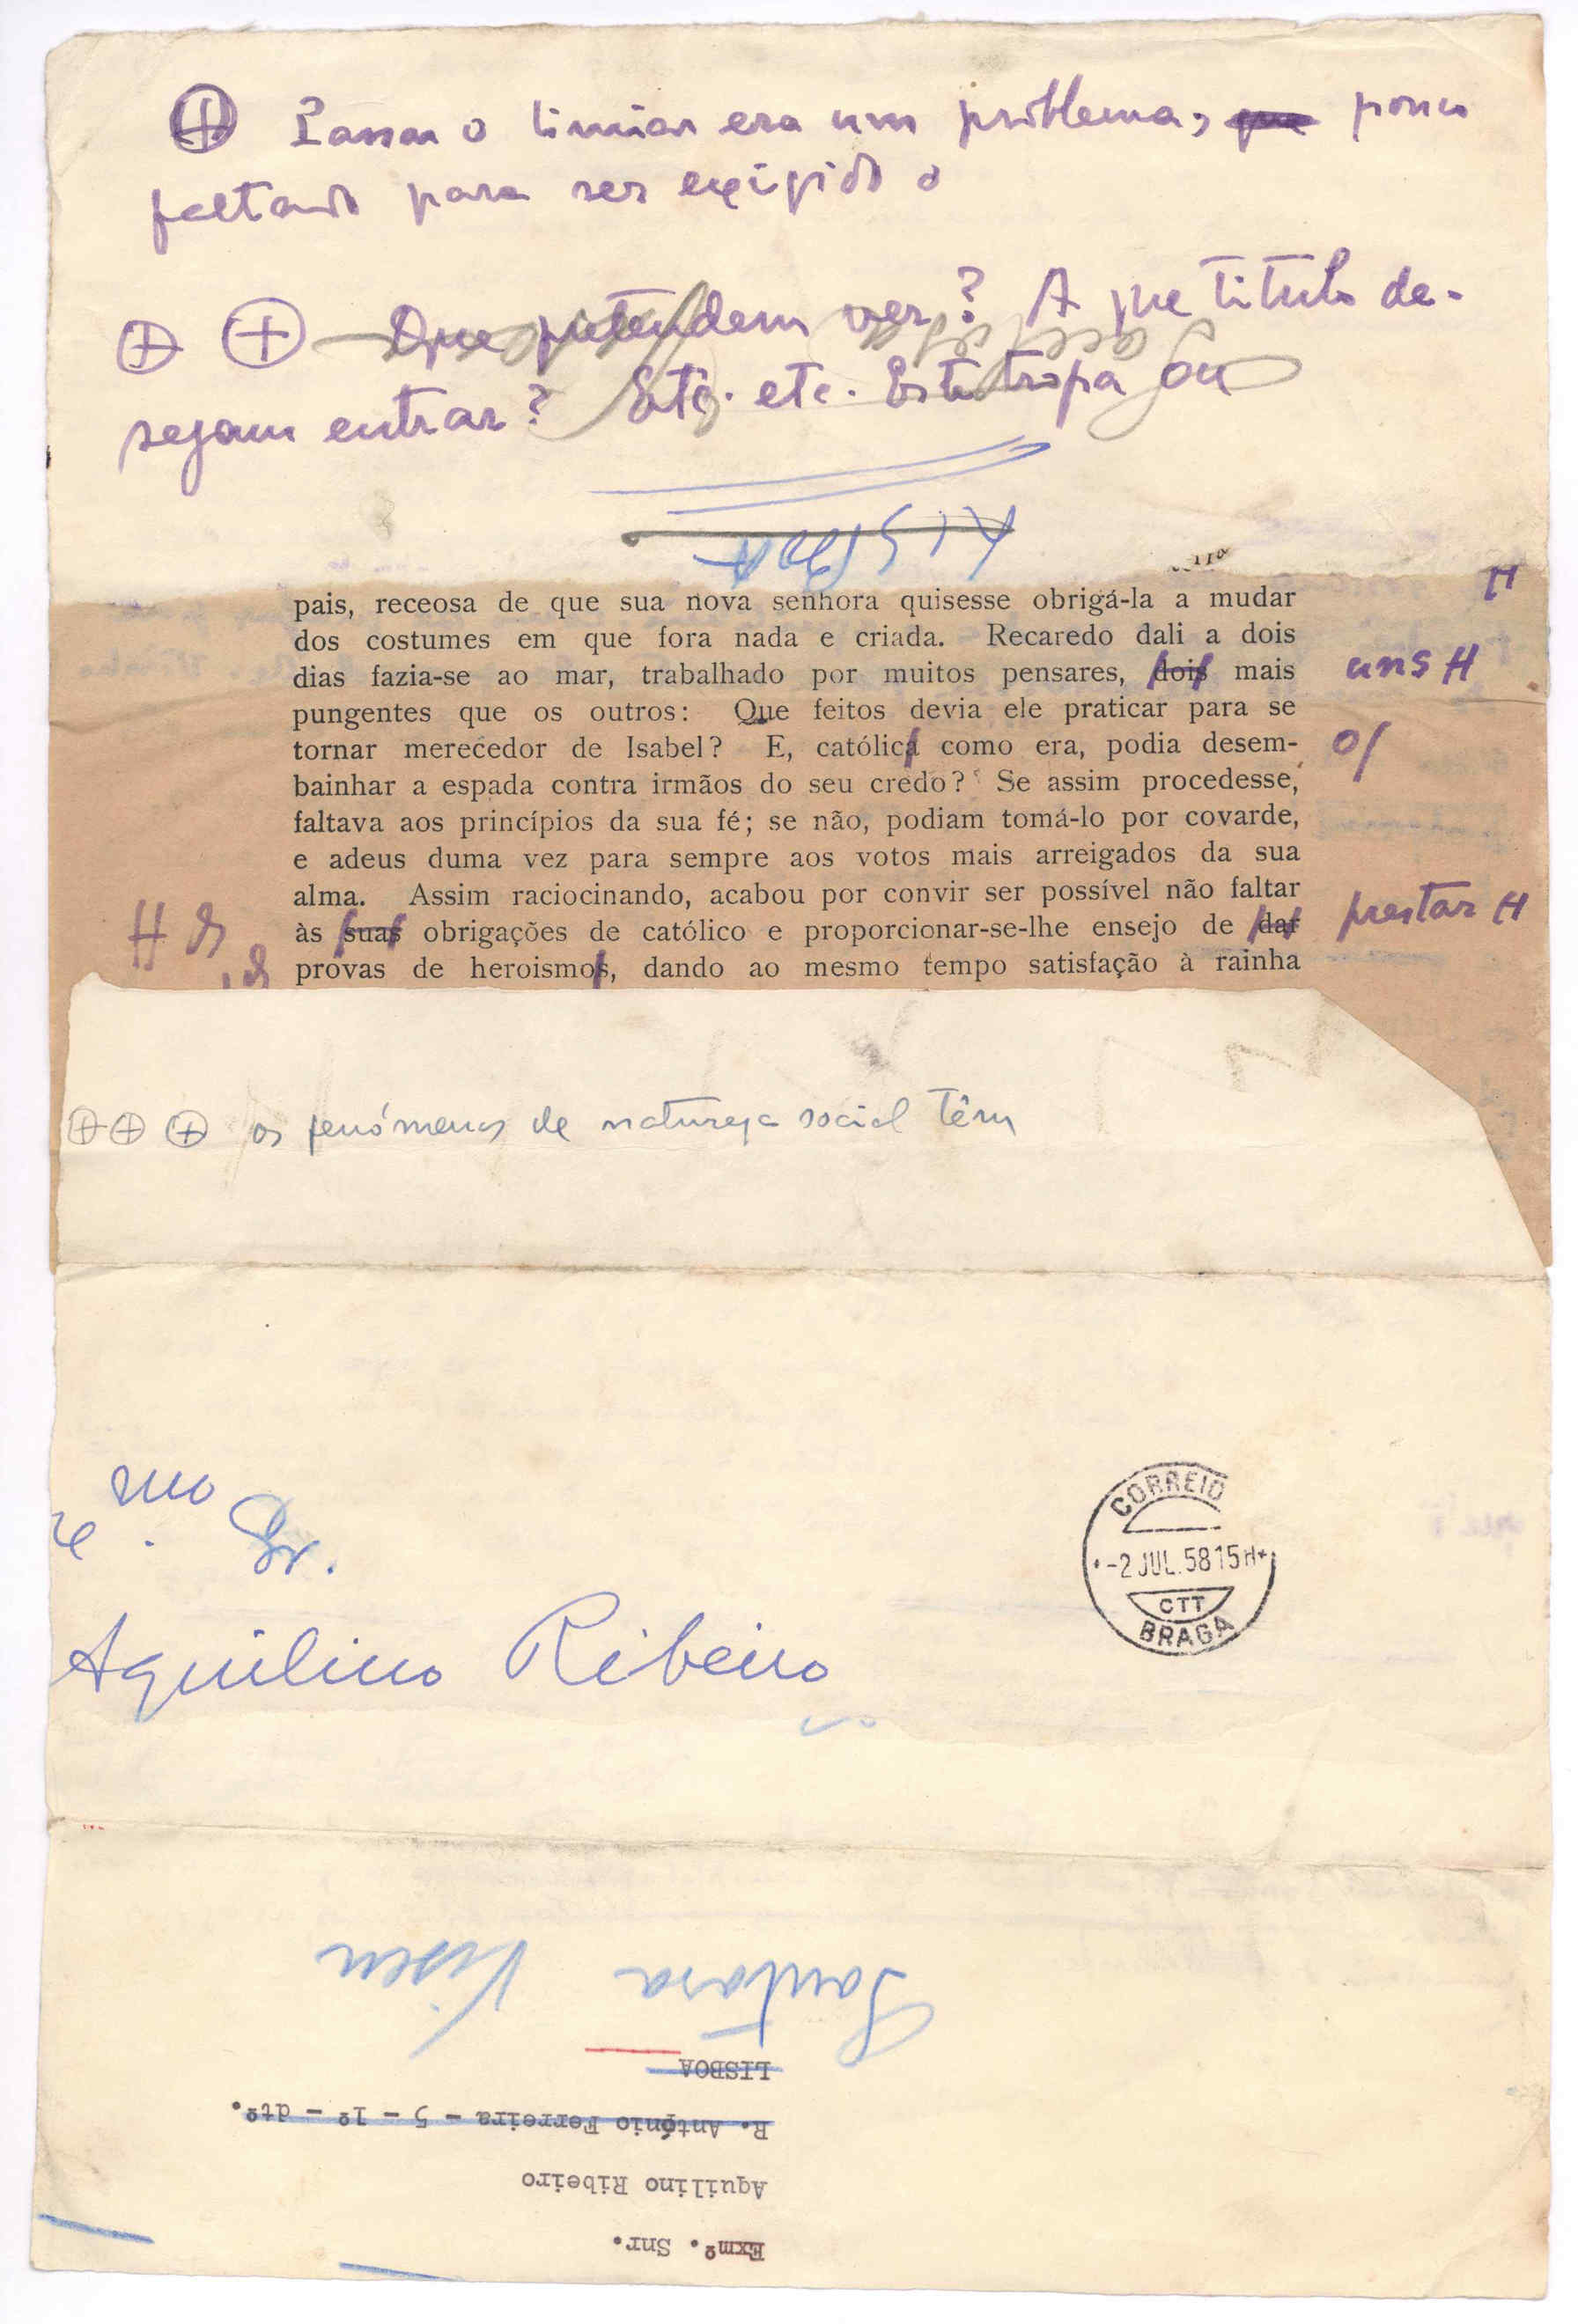 Passar o limiar era um problema, que pouco
faltando para ser exigido o
Que pretendem ver? A que titulo de-
sejam entrar? Etc. etc. Esta tropa ou
LISBOA
pais, receosa de que sua nova senhora quisesse obrigá-la a mudar
H
dos costumes em que fora nada e criada. Recaredo dali a dois
dias fazia-se ao mar, trabalhado por muitos pensares, dois mais uns H
pungentes que os outros: Que feitos devia ele praticar para se
tornar merecedor de Isabel? E, católica como era, podia desem- o/
bainhar a espada contra irmãos do seu credo? Se assim procedesse,
faltava aos princípios da sua fé; se não, podiam tomá-lo por covarde,
e adeus duma vez para sempre aos votos mais arreigados da sua
alma. Assim raciocinando, acabou por convir ser possível não faltar
às suas obrigações de católico e proporcionar-se-lhe ensejo de dar prestar H
provas de heroismos, dando ao mesmo tempo satisfação à rainha
os fenómenos de natureza social têm
mo
Sr.
Aquilino Ribeiro
CORREIO
-2 JUL. 58 15H
CTT
BRAGA
Exmº. Snr.
Aquilino Ribeiro
R. António Ferreira - 5 - 1º - dtº.
LISBOA
Soutosa Viseu